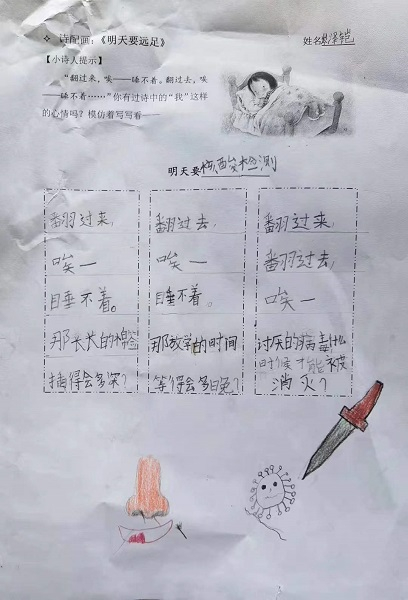 诗配画：《明天要远足》
姓名
【小诗人提示】
“翻过来，唉——睡不着。翻过去，唉
——睡不着……”你有过诗中的“我”这样
的心情吗？模仿着写写看——
明天要核酸检测
翻过来，
唉一
睡不着。
那长长的棉签
插得会多深？
翻过去，
唉一
睡不着。
那放学的时间
等得会多晚？
翻过来，
翻过去，
唉一
讨厌的病毒什么
时候才能被
消灭？